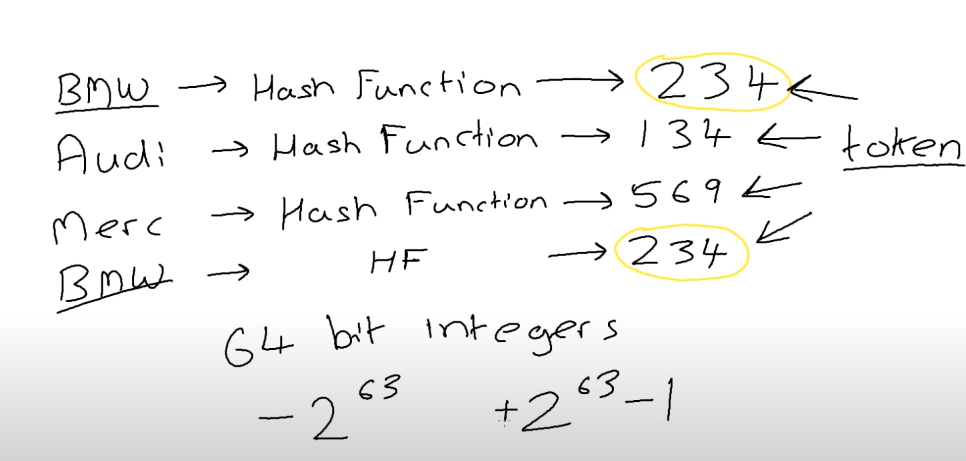 BMW → Hash Function → 234 ←
Audi → Hash Function → 134 ← token
Merc → Hash Function → 569 ←
BMW → HF → 234 ←
64 bit integers
-2^63 +2^63-1